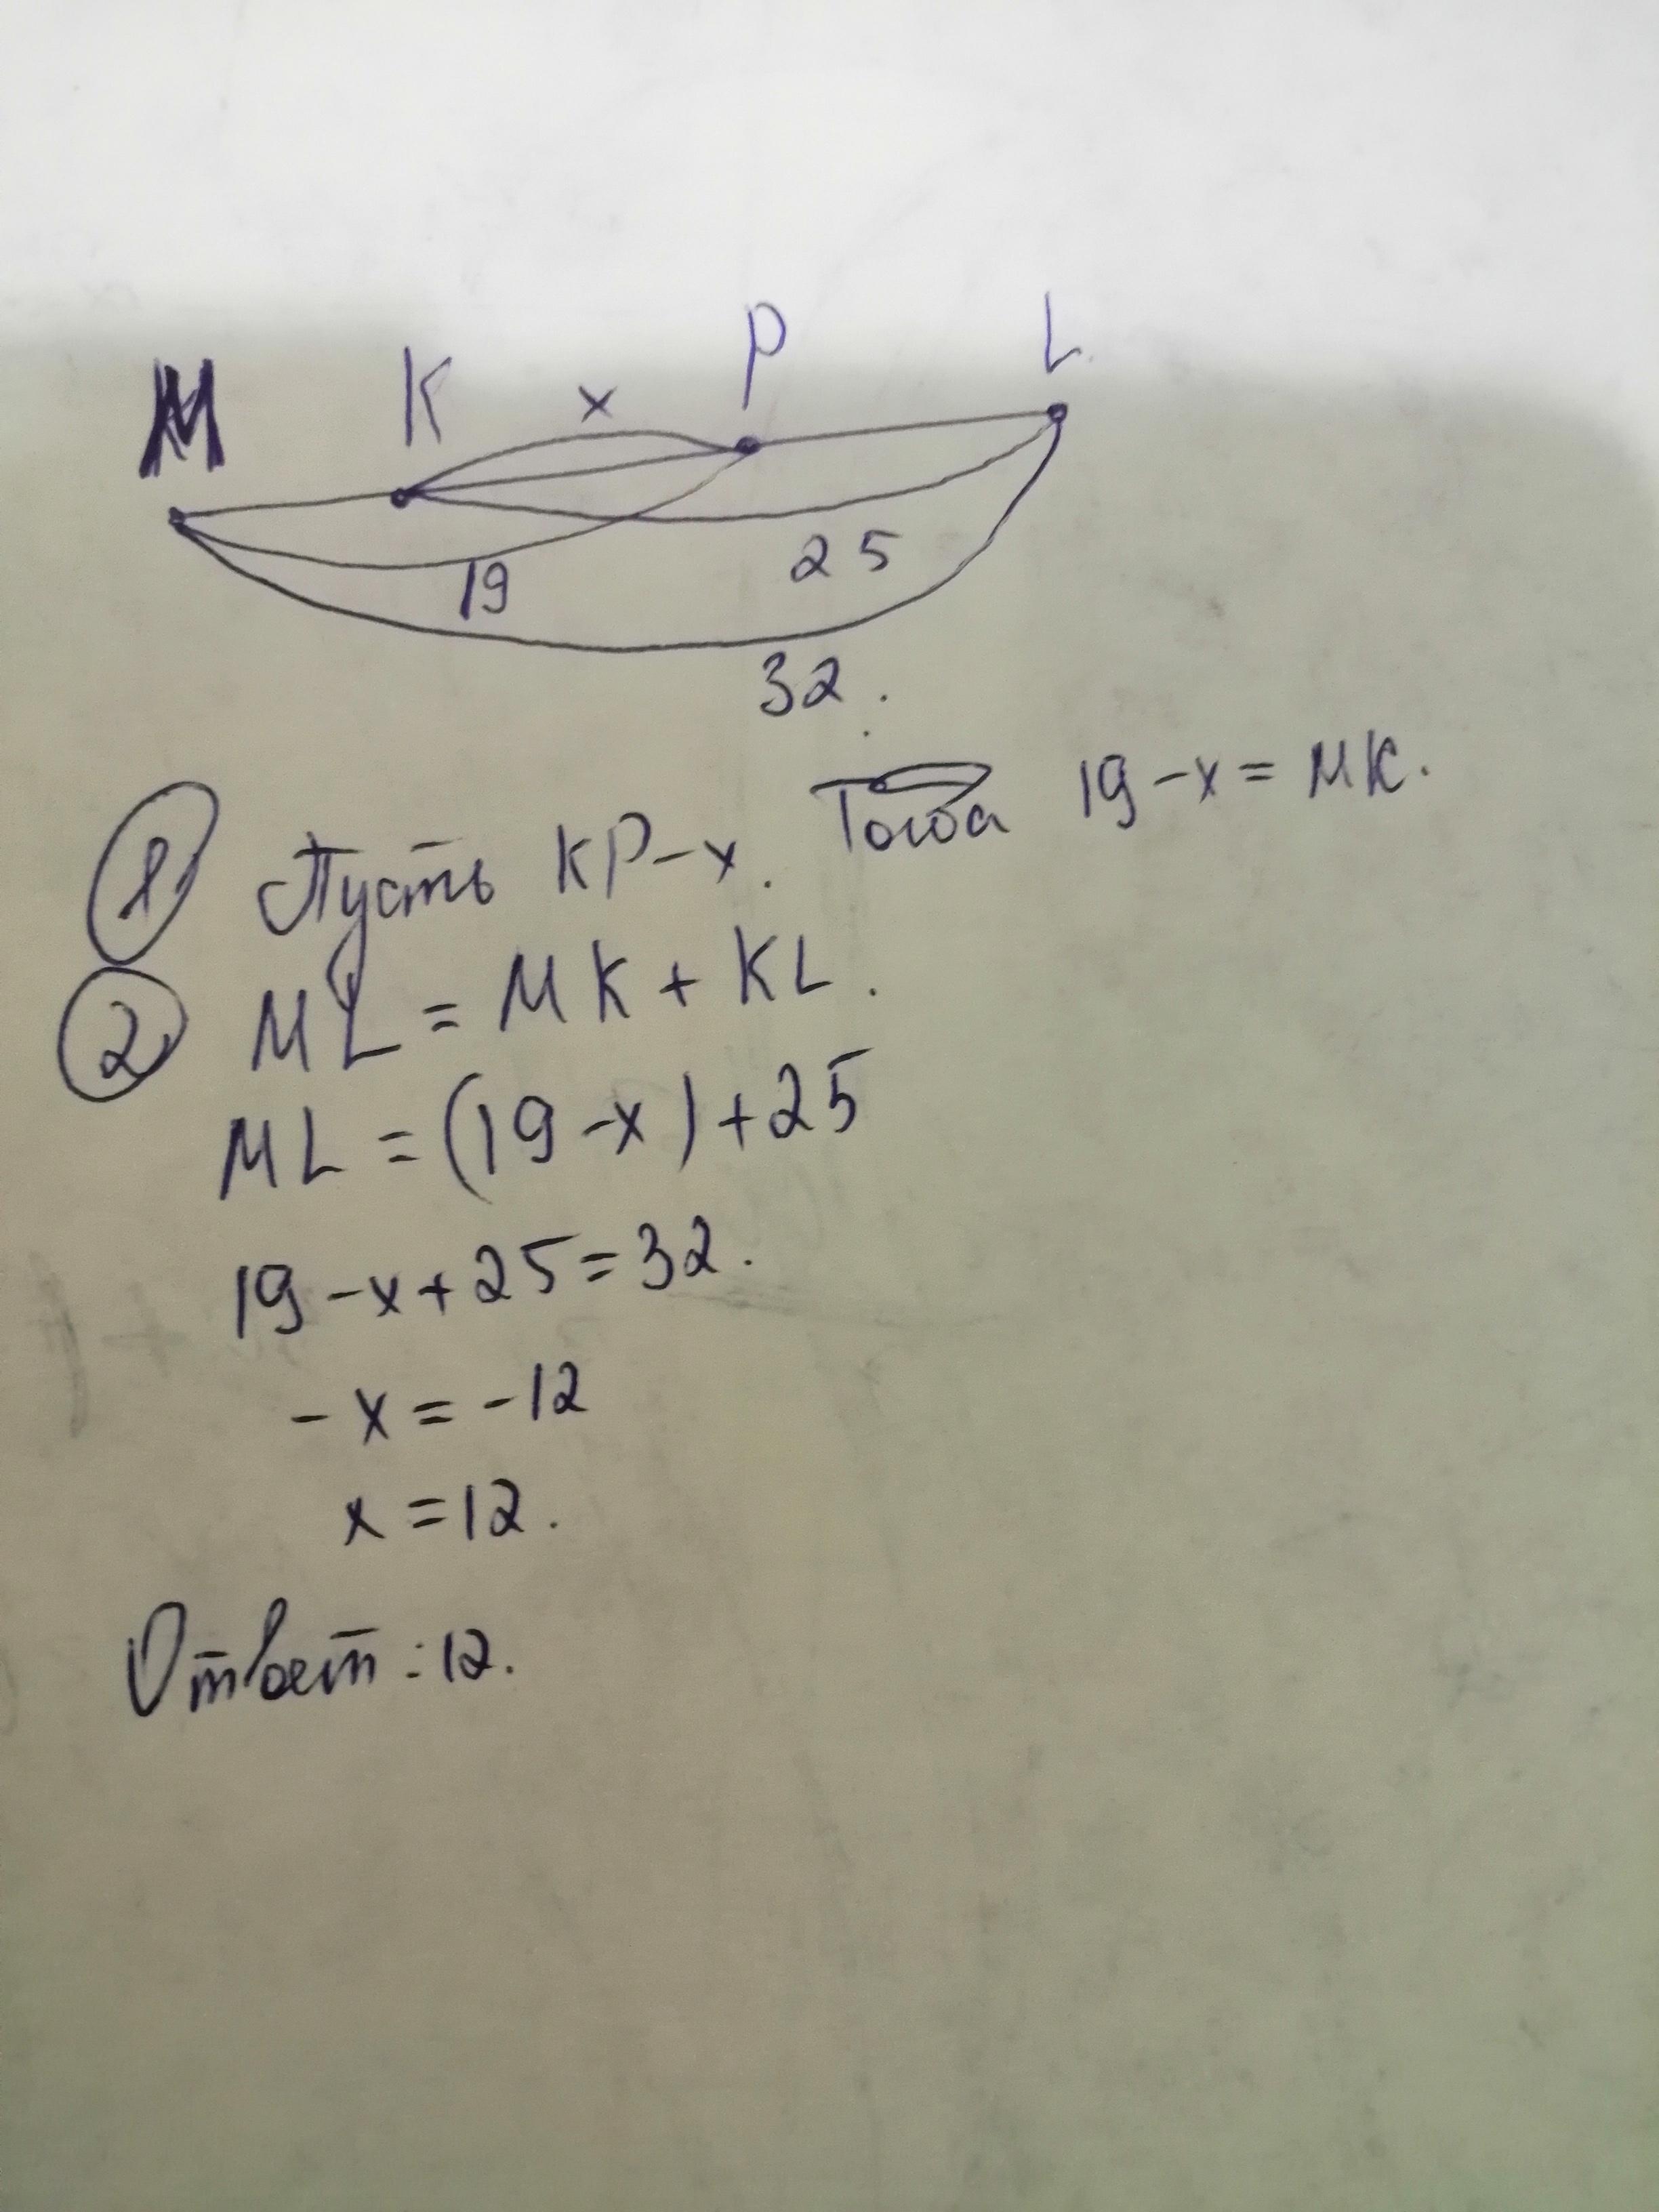 M K x P L
19 25
32.
① Пусть KP-x. Тогда 19-x = MK.
② ML = MK + KL.
ML = (19-x)+25
19-x+25=32.
-x = -12
x = 12.
Ответ: 12.